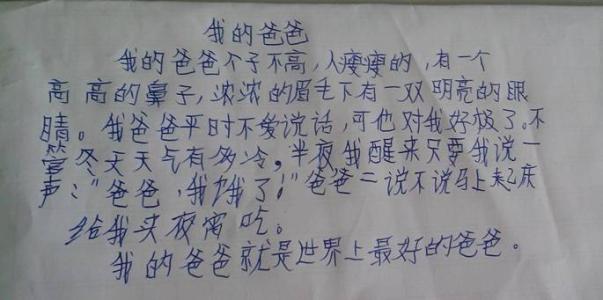 我的爸爸
我的爸爸个子不高,人瘦瘦的,有一个
高高的鼻子,浓浓的眉毛下有一双明亮的眼
睛。我爸爸平时不爱说话,可他对我好极了。不
管冬天天气有多冷,半夜我醒来只要我说一
声:“爸爸,我饿了!”爸爸二说不说马上起床
给我买夜宵吃。
我的爸爸就是世界上最好的爸爸。